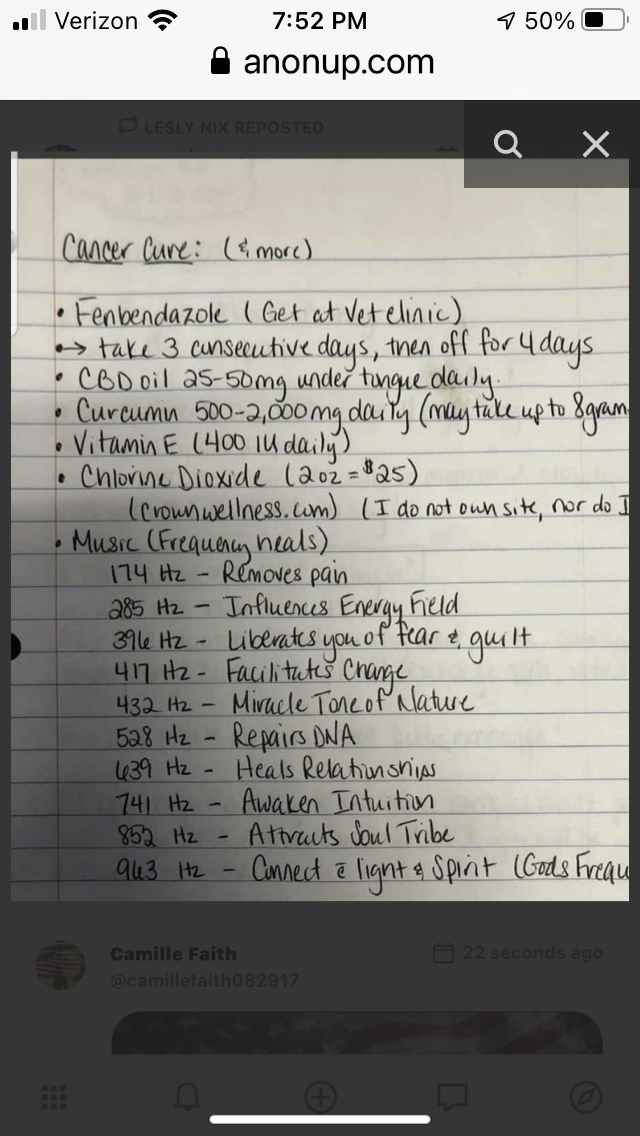 Verizon 7:52 PM 50%
anonup.com
LESLY NIX REPOSTED
Cancer Cure: (& more)
• Fenbendazole (Get at Vet clinic)
•→ take 3 consecutive days, then off for 4 days
• CBD oil 25-50mg under tongue daily.
• Curcumin 500-2,000mg daily (may take up to 8gram
• Vitamin E (400 IU daily)
• Chlorine Dioxide (2oz = $25)
(crownwellness.com) (I do not own site, nor do I
• Music (Frequency heals)
174 Hz - Removes pain
285 Hz - Influences Energy Field
396 Hz - Liberates you of fear & guilt
417 Hz - Facilitates Change
432 Hz - Miracle Tone of Nature
528 Hz - Repairs DNA
639 Hz - Heals Relationships
741 Hz - Awaken Intuition
852 Hz - Attracts Soul Tribe
963 Hz - Connect c̄ light & Spirit (Gods Frequ
Camille Faith 22 seconds ago
@camillefaith082917